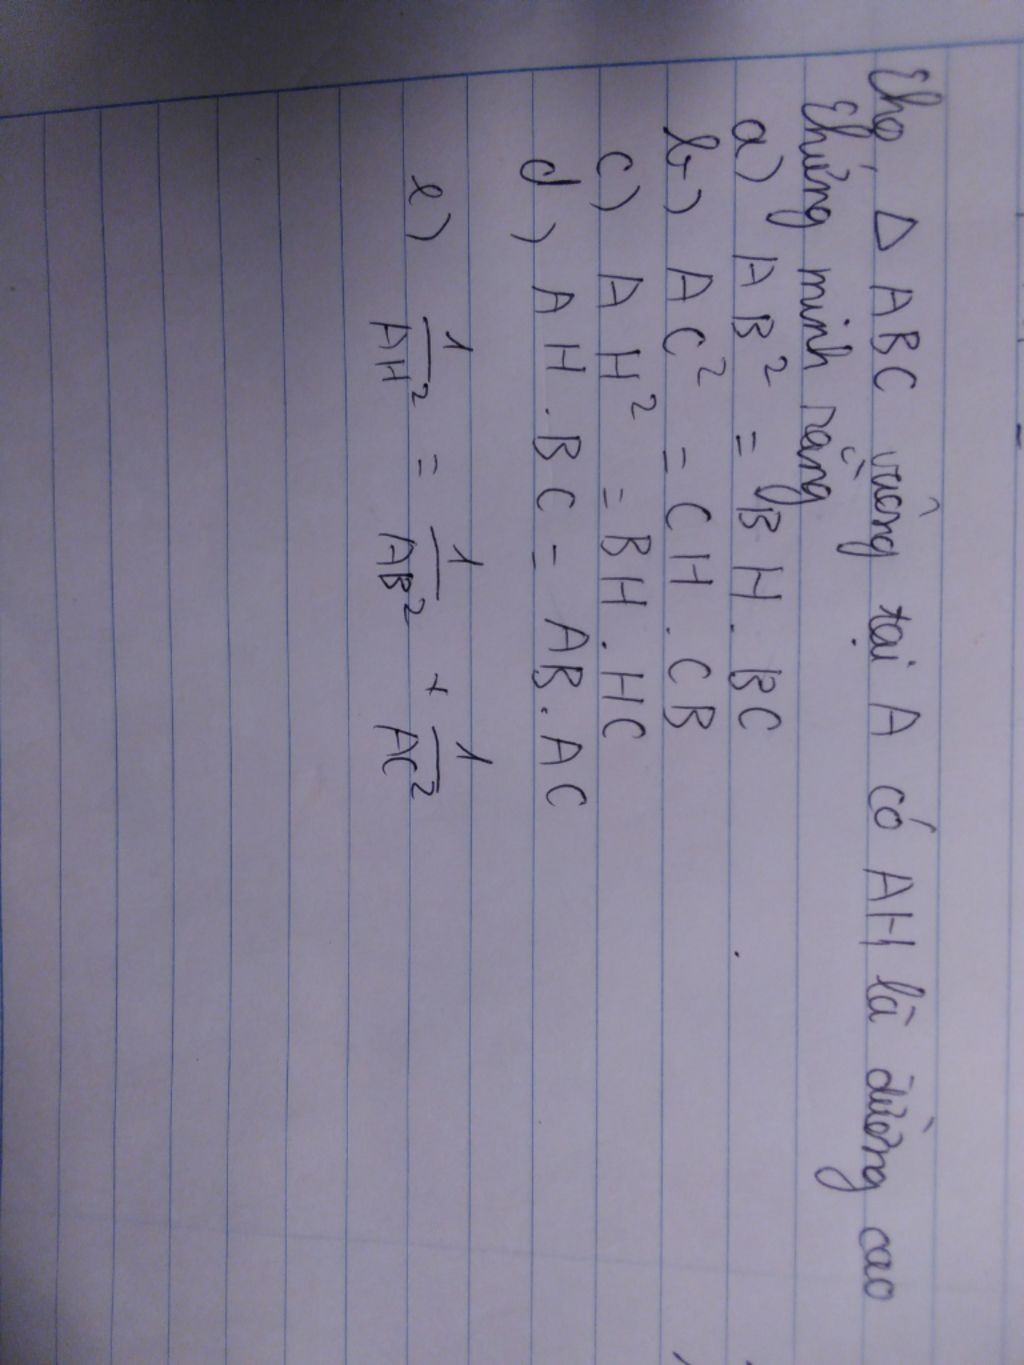 Cho △ ABC vuông tại A có AH là đường cao
Chứng minh rằng
a) AB² = BH . BC
b) AC² = CH . CB
c) AH² = BH . HC
d) AH . BC = AB . AC
e) 1/AH² = 1/AB² + 1/AC²